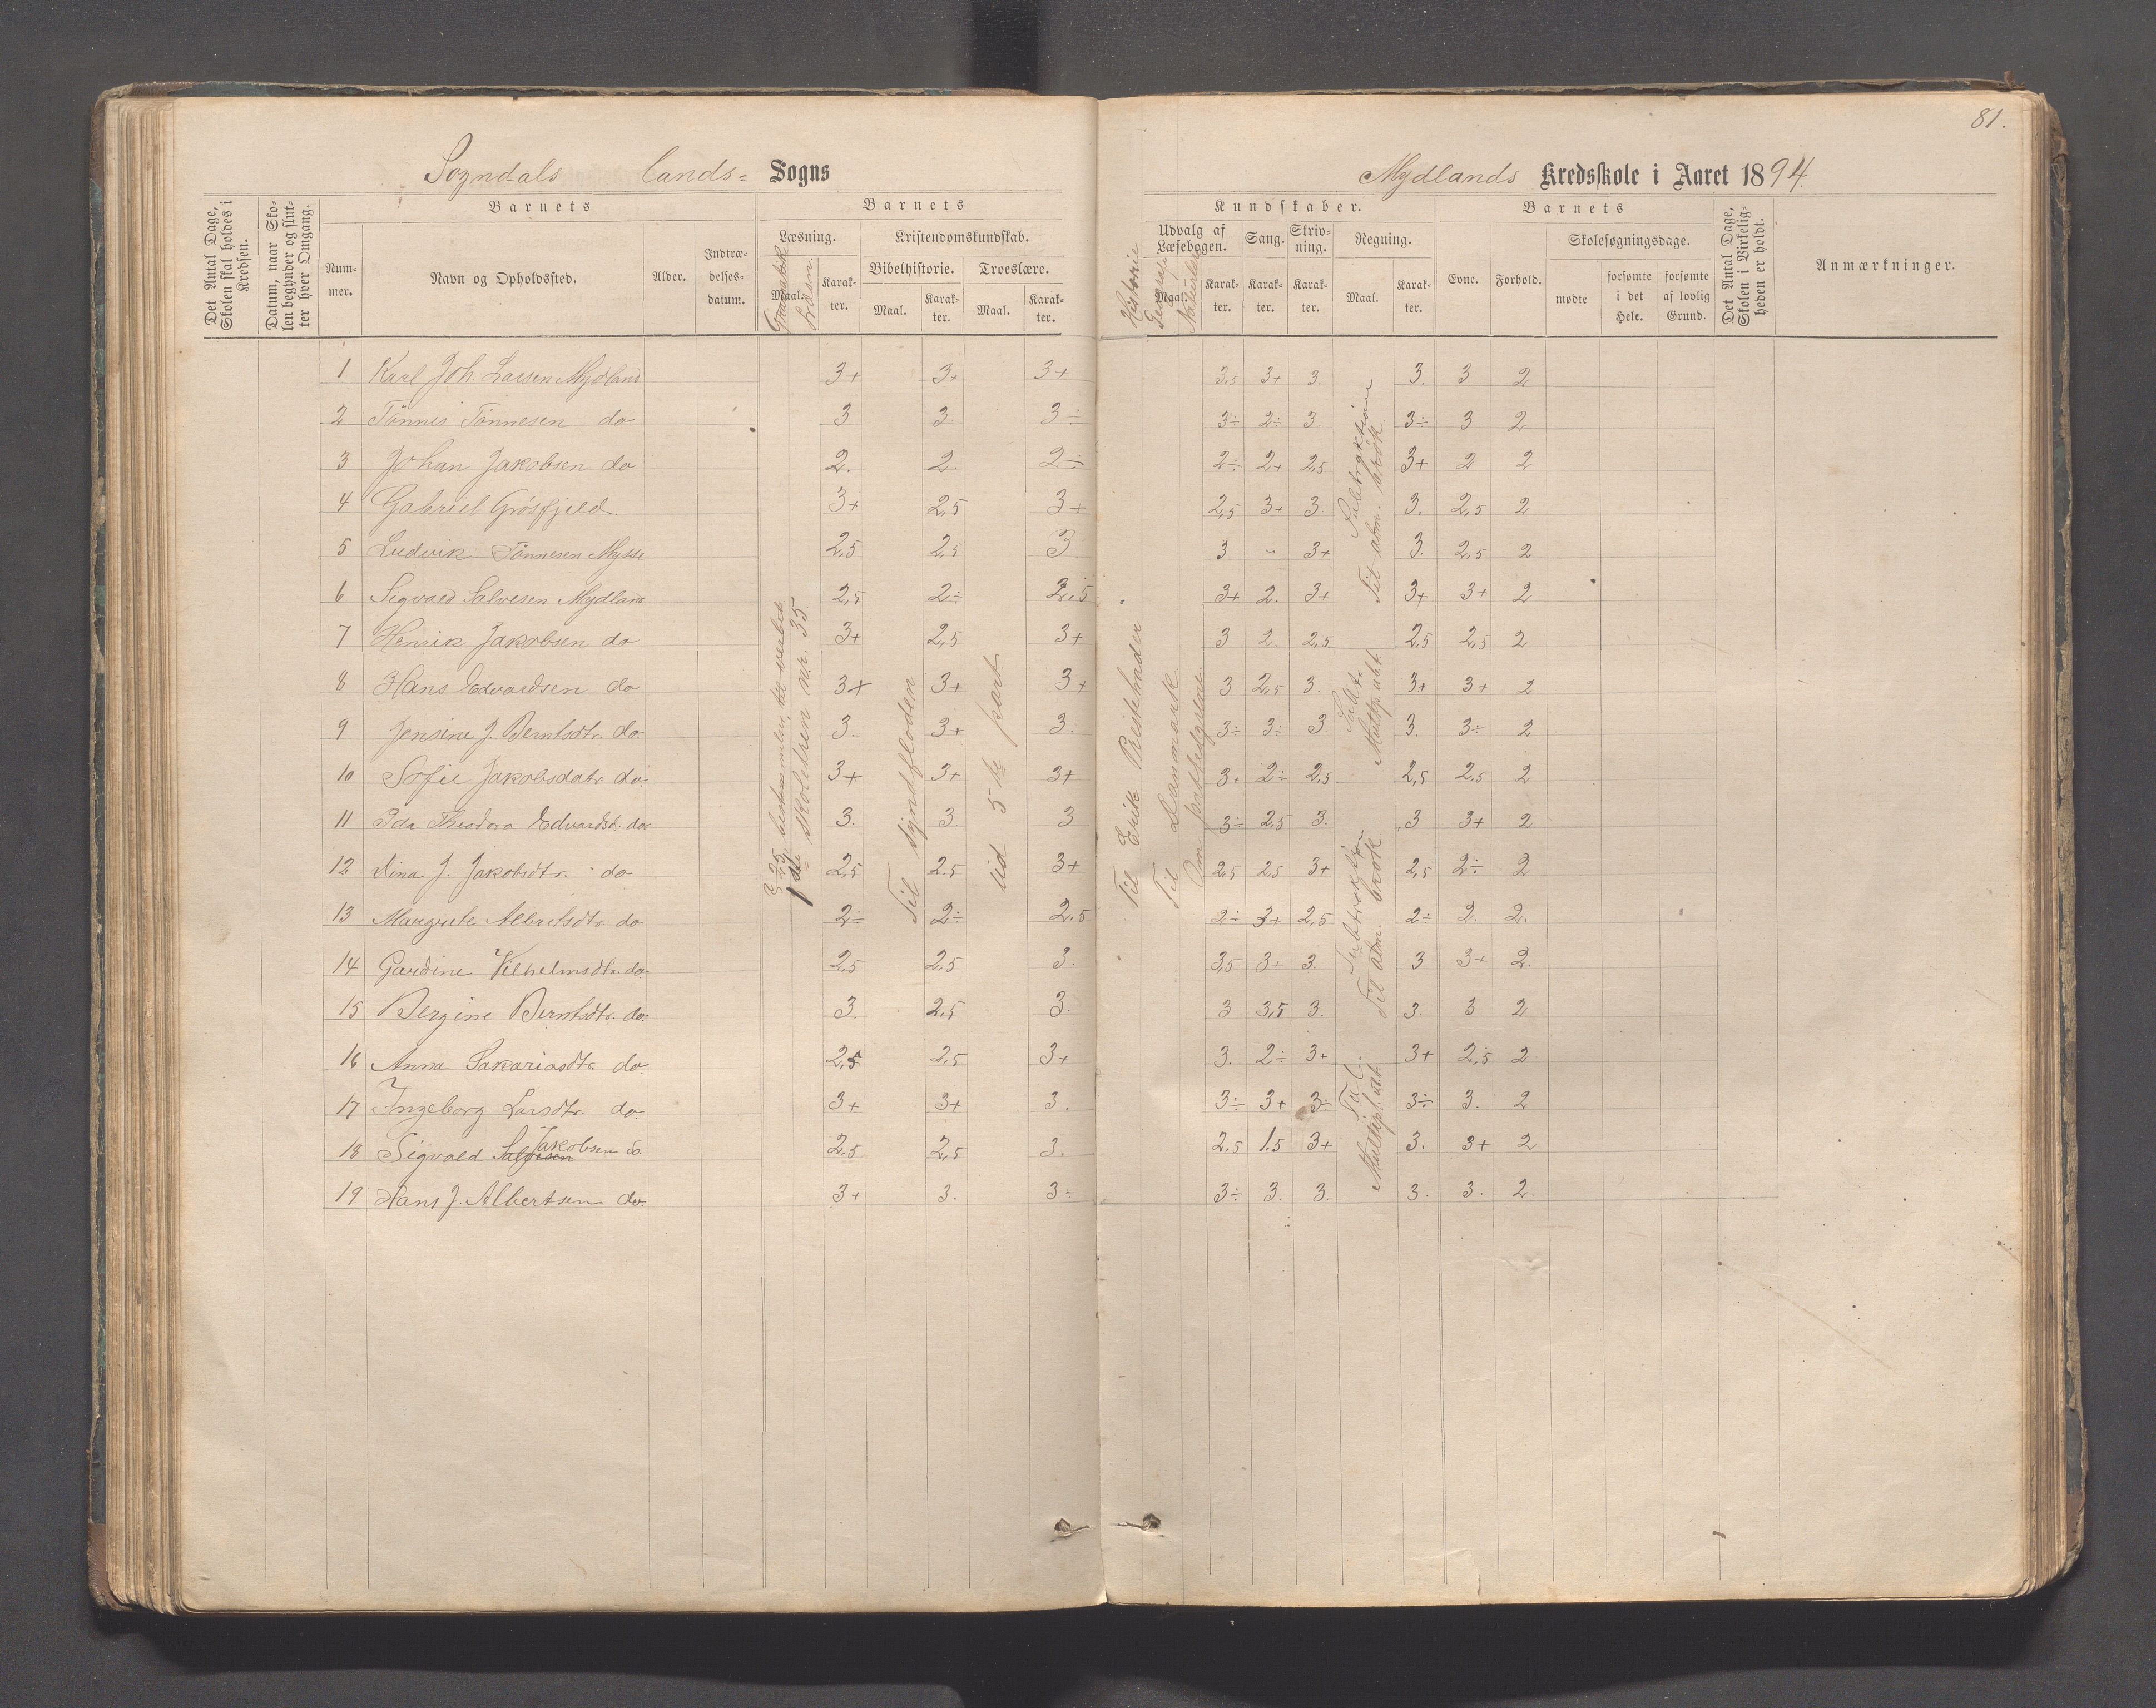 81.
Sogndals lands= Sogns
Mydlands Kredsskole i Aaret 1894.
Det Antal Dage, Skolen skal holdes i Kredsen.
Datum, naar Skolen begynder og slutter hver Omgang.
Barnets
Nummer.
Navn og Opholdssted.
Alder.
Indtrædelsesdatum.
Barnets
Læsning.
Maal.
Karakter.
Kristendomskundskab.
Bibelhistorie.
Maal.
Karakter.
Troeslære.
Maal.
Karakter.
Kundskaber.
Historie
Udvalg af Læsebogen.
Maal.
Karakter.
Sang.
Karakter.
Skrivning.
Karakter.
Regning.
Maal.
Karakter.
Barnets
Evne.
Forhold.
Skolesøgningsdage.
mødte
forsømte i det Hele.
forsømte af lovlig Grund.
Det Antal Dage, Skolen i Virkeligheden er holdt.
Anmærkninger.
1 Karl Joh. Larsen Mydland 3+ 3+ 3+ 3,5 3+ 3. 3. 3 2
2 Tønnes Tønnesen do 3 3. 3÷ 3÷ 2÷ 3 3÷ 3 2
3 Johan Jakobsen do 2. 2 2÷ 2÷ 2+ 2,5 3+ 2 2
4 Gabriel Grøsfjeld. 3+ 2,5 3+ 2,5 3+ 3. 3. 2,5 2
5 Ludvik Tønnesen Mysse 2,5 2,5 3 3 - 3+ 3. 2,5 2
6 Sigvald Salvesen Mydland 2,5 2÷ 2,5 3+ 2. 3+ 3+ 3+ 2
7 Henrik Jakobsen do 3+ 2,5 3+ 3 2. 2,5 2,5 2,5 2
8 Hans Edvardsen do 3+ 3+ 3+ 3 2,5 3. 3+ 3+ 2
9 Jensine J. Berntsdtr. do 3. 3+ 3. 3÷ 3÷ 3 3. 3÷ 2
10 Sofie Jakobsdatr. do 3+ 3+ 3+ 3+ 2÷ 2,5 2,5 2,5 2
11 Ida Theodora Edvardsdtr. do 3. 3 3 3÷ 2,5 3. 3 3+ 2
12 Dina J. Jakobsdtr. do 2,5 2,5 3+ 2,5 2,5 3+ 2,5 2÷ 2
13 Margrete Albertsdtr do 2÷ 2÷ 2,5 2÷ 3+ 2,5 2÷ 2. 2.
14 Gardine Vilhelmsdtr. do. 2,5 2,5 3. 3,5 3+ 3. 3 3+ 2.
15 Bergine Berntsdtr. do. 3. 2,5 3. 3 3,5 3. 3. 3 2
16 Anna Sakariasdtr. do. 2,5 2,5 3+ 3. 2÷ 3+ 3+ 2,5 2
17 Ingeborg Larsdtr. do 3+ 3+ 3. 3÷ 3+ 3÷ 3÷ 3. 2
18 Sigvald Salvesen Jakobsen do. 2,5 2,5 3. 2,5 1,5 3+ 3. 3+ 2
19 Hans J. Albertsen do. 3+ 3. 3÷ 3÷ 3. 3. 3. 3. 2.
skolelæsen nr. 35.
Til syndfloden
Til 5te part
Til Erik Præstehader
Til Danmark
Subtraktion
Til alm. brøk
Til alm. brøk